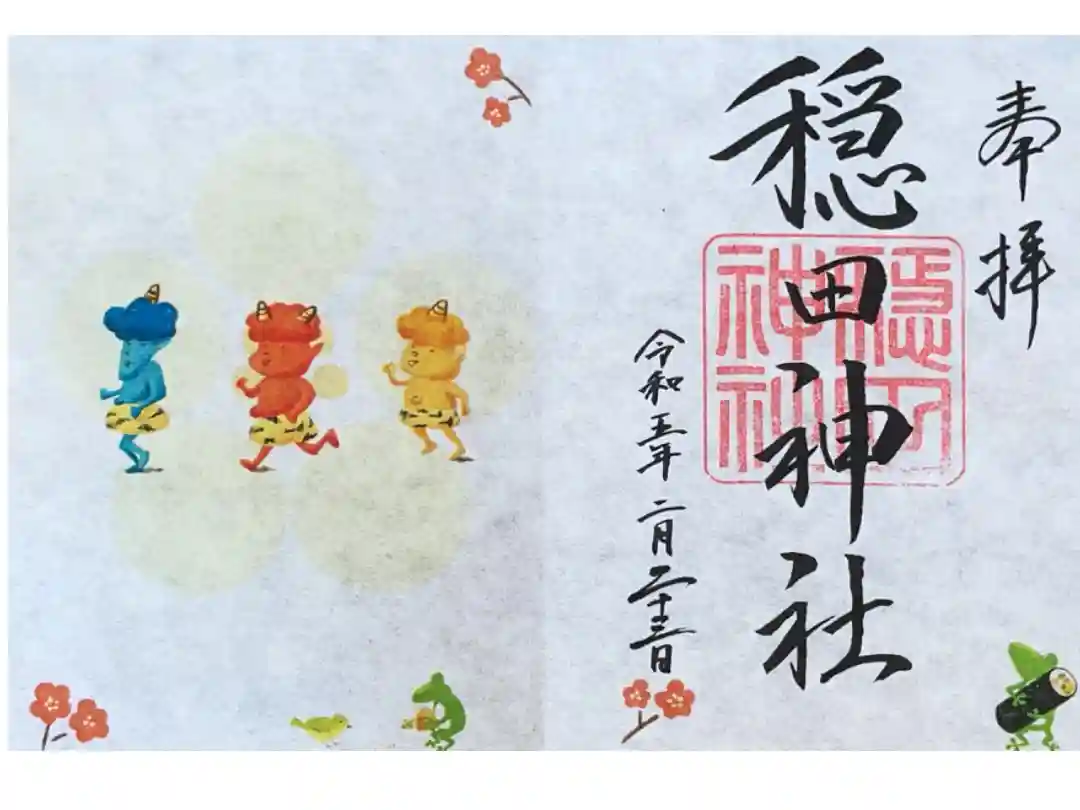 奉拝
穏田神社
穏田神社
令和五年二月二十三日